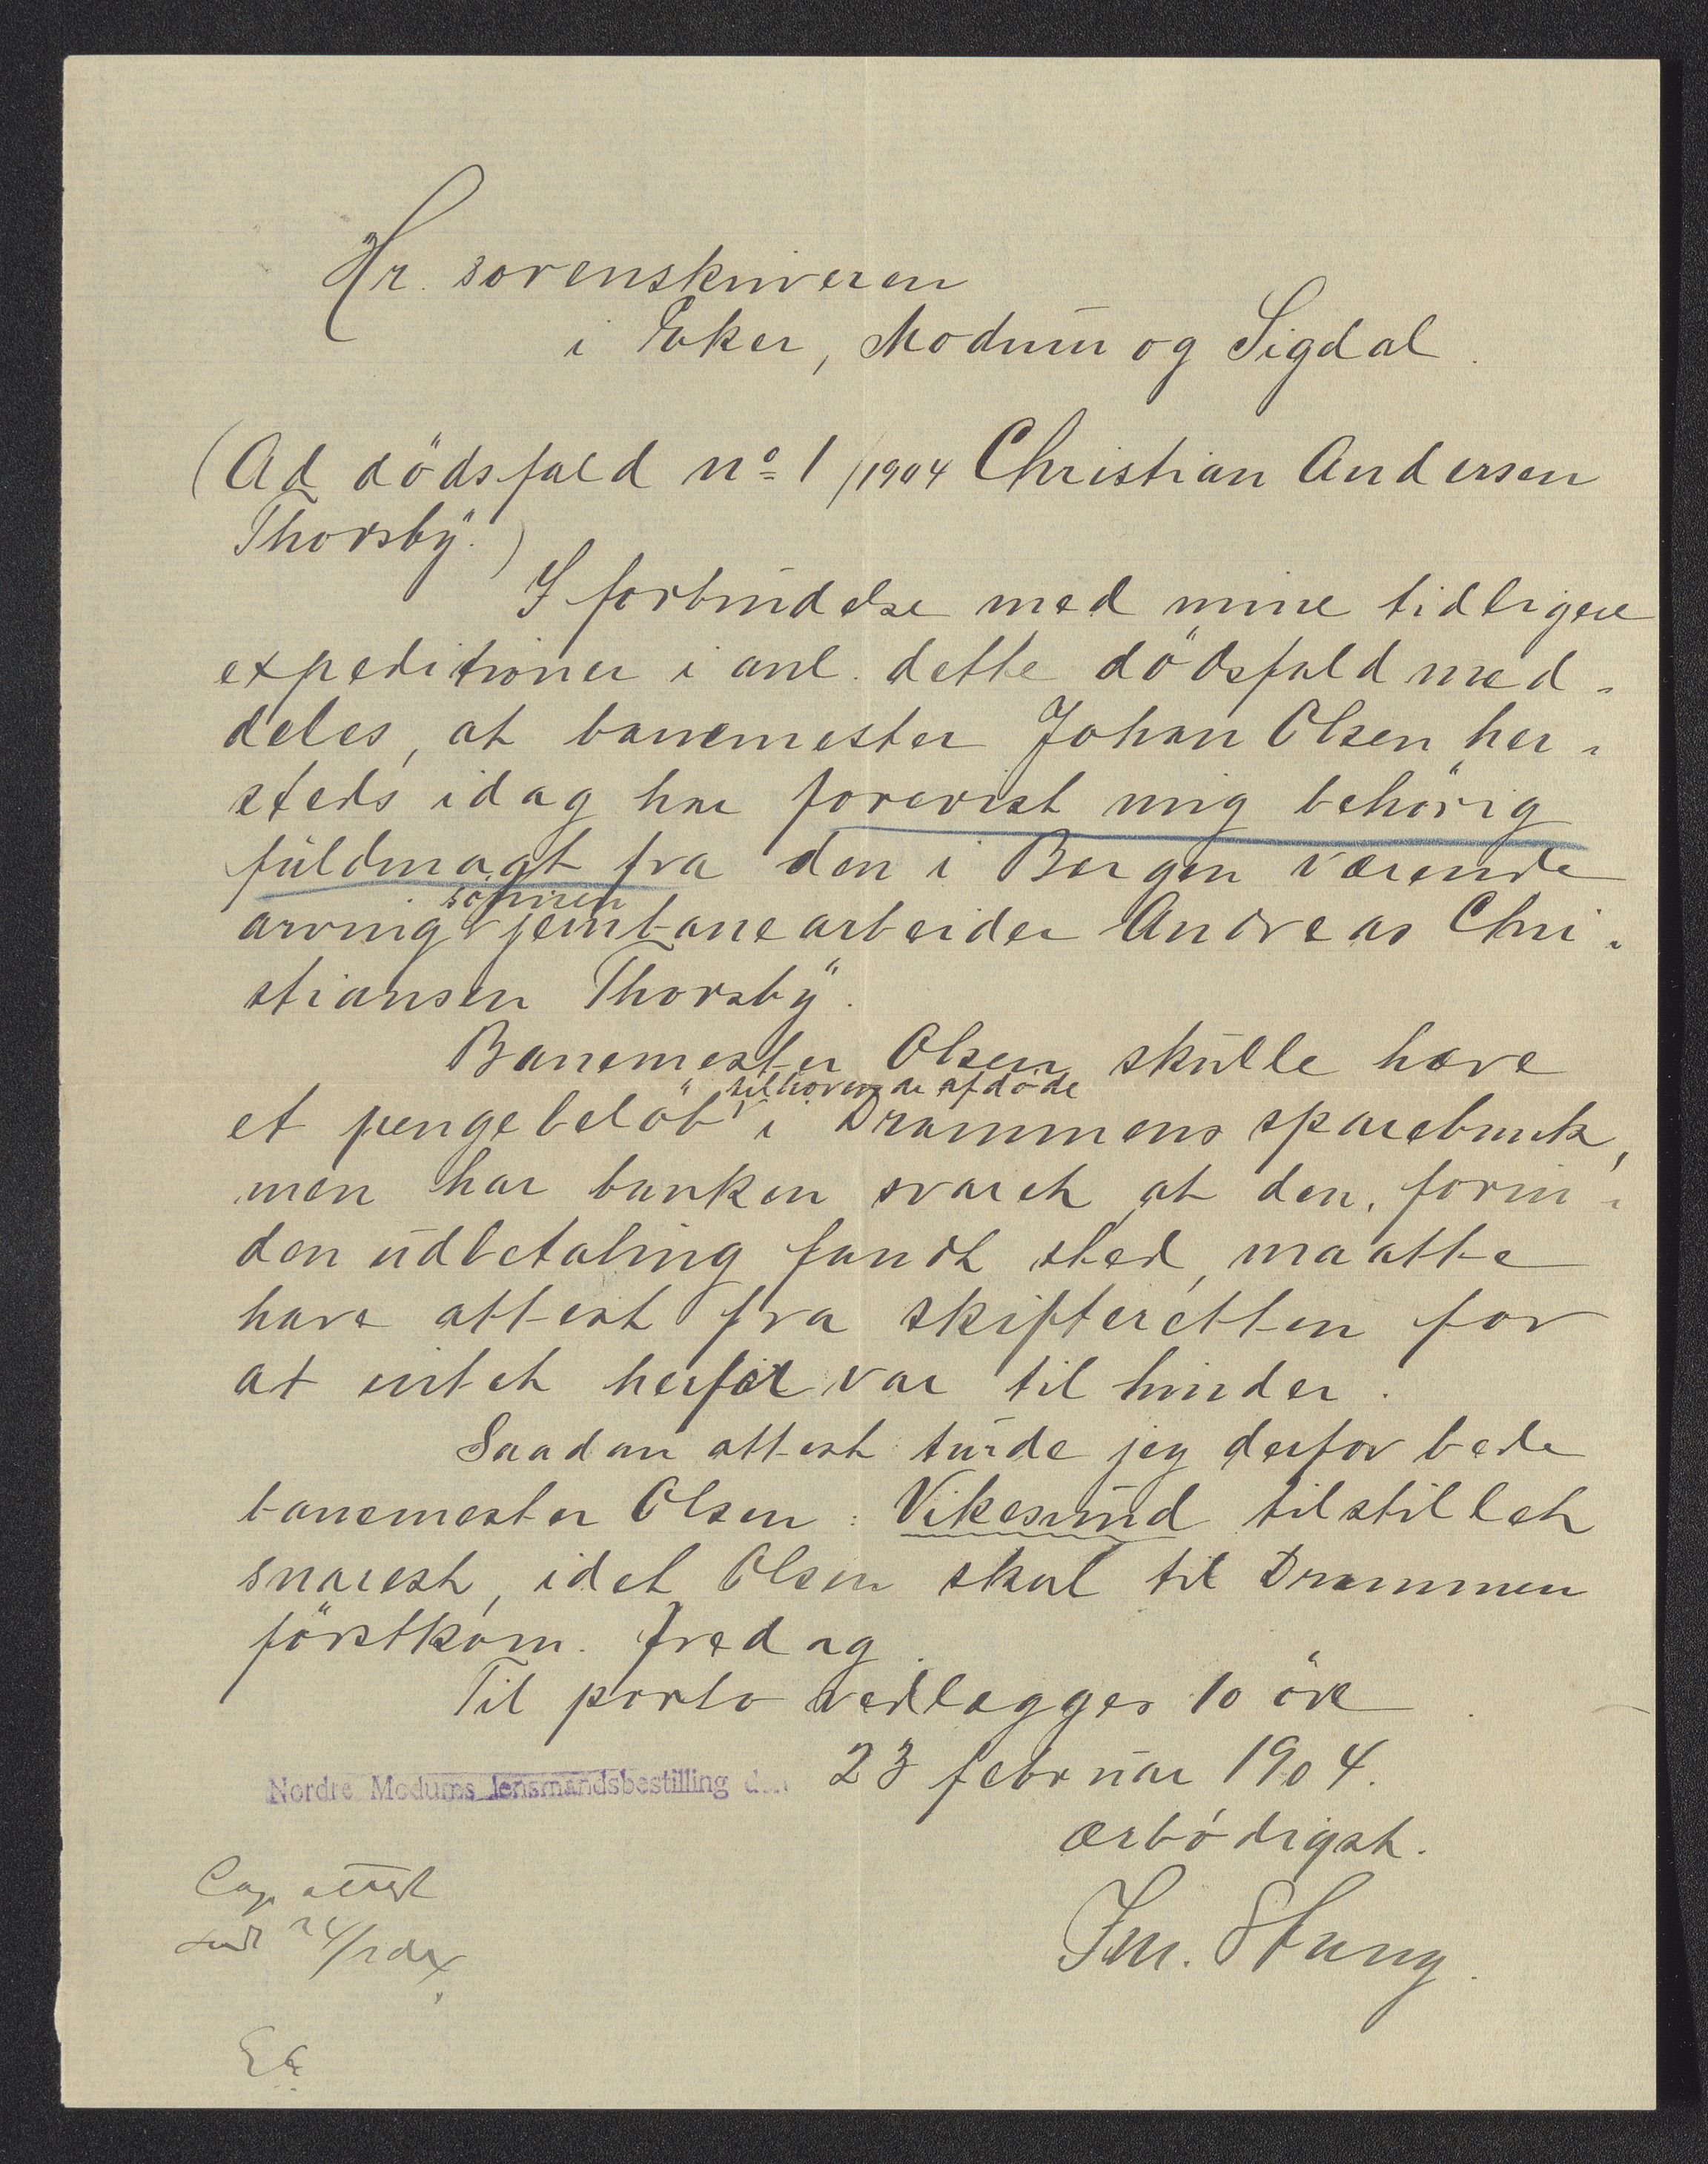 Hr. sorenskriveren
i Eker, Modum og Sigdal.
(Ad dödsfald nº 1/1904 Christian Andersen
Thorsby.)
I forbindelse med mine tidligere
expeditioner i anl. dette dödsfald med-
deles, at banemester Johan Olsen her-
steds idag har forevist mig behörig
fuldmagt fra den i Bergen værende
arving sønnen jernbanearbeider Andreas Chri-
stiansen Thorsby.
Banemester Olsen skulle hæve
et pengebelöb tilhörende afdöde i Drammens sparebank,
men har banken svaret at den, forin-
den udbetaling fandt sted, maatte
have attest fra skifteretten for
at intet herfor var til hinder.
Saadan attest turde jeg derfor bede
banemester Olsen : Vikesund tilstillet
snarest, idet Olsen skal til Drammen
förstkom. fredag.
Til porto vedlægges 10 öre.
Nordre Modums lensmandsbestilling den 23 februar 1904.
ærbödigst.
attest
24/2